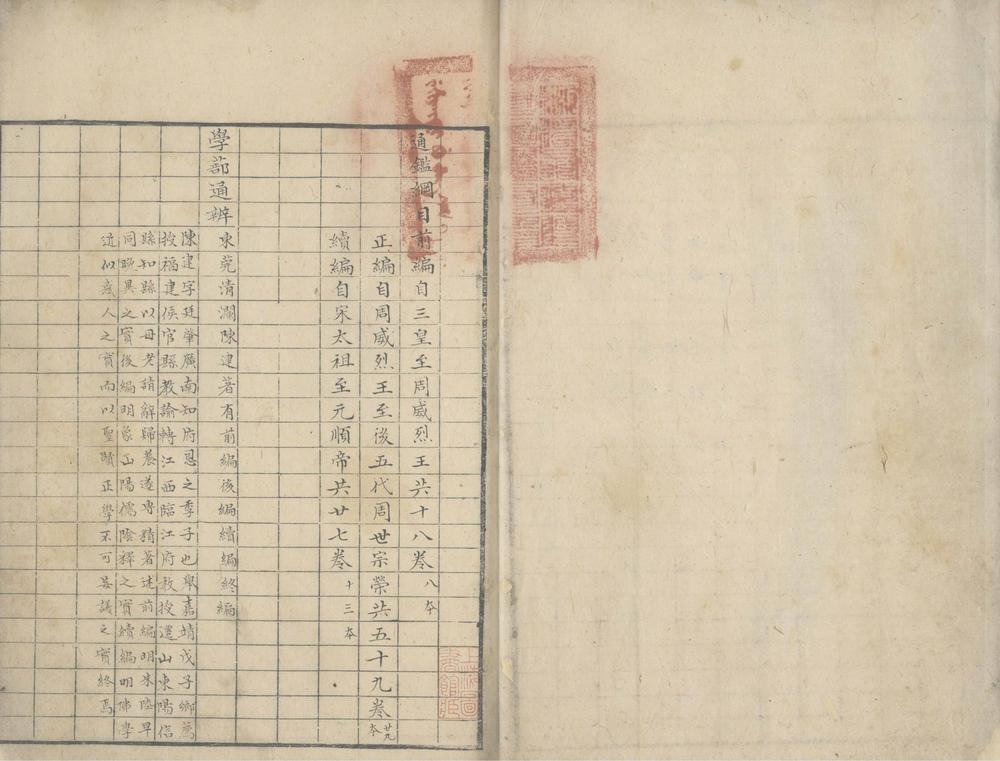 通鑑綱目前編自三皇至周威烈王共十八卷八本
正編自周威烈王至後五代周世宗榮共五十九卷廿九本
續編自宋太祖至元順帝共廿七卷十三本
學蔀通辨
東莞清瀾陳建著有前編後編續編終編
陳建字廷肇廣南知府恩之季子也舉嘉靖戊子鄉薦
授福建侯官縣教諭轉江西臨江府教授還山東陽信
縣知縣以母老請解歸養遂專精著述前編明朱陸早
同晚異之實後編明象山陽儒陰釋之實續編明佛學
近似惑人之實而以聖賢正學不可妄議之實終焉
上海圖
書館藏